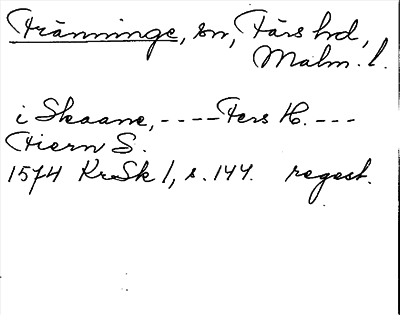 Tränninge, sn, Färs hd,
Malm. l.
i Skaane, ---- Fers H. ---
Tiern S.
1574 KrSk 1, s. 144. regest.